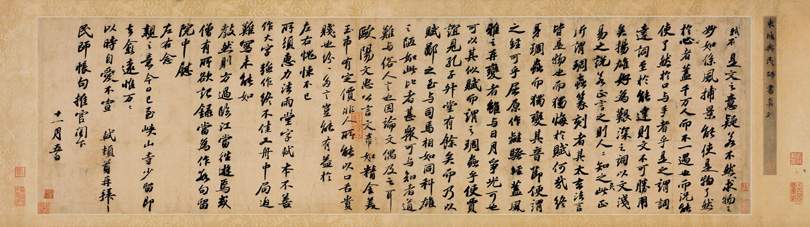 東坡與民師書真跡
是文之意疑若不然求物之
妙如係風捕景能使是物了然
於心者蓋千萬人而不一遇也而況能
使了然於口與手者乎是之謂詞
達詞至於能達則文不可勝用
矣揚雄好為艱深之詞以文淺
易之說若正言之則人人知之矣此正
所謂雕蟲篆刻者其太玄法言
皆是物也而獨悔於賦何哉終
身雕蟲而獨變其音節便謂
之經可乎屈原作離騷經蓋風
雅之再變者雖與日月爭光可也
可以其似賦而謂之雕蟲乎使賈
誼見孔子升堂有餘矣而乃以
賦鄙之至與司馬相如同科雄
之陋如此比者甚眾可與知者道
難與俗人言也因論文偶及之耳
歐陽文忠公言文章如精金美
玉市有定價非人所能以口舌貴
賤也紛紛多言豈能有益於
左右愧悚不已
所須惠力法雨堂字軾本不善
作大字強作終不佳又舟中局迫
難寫未能如
教然軾方過臨江當往遊焉或
僧有所欲記錄當為作數句留
院中慰
左右念
親之意今日已至峽山寺少留即
去愈遠惟萬萬
以時自愛不宣 軾頓首再拜
民師帳句推官閣下
十一月五日